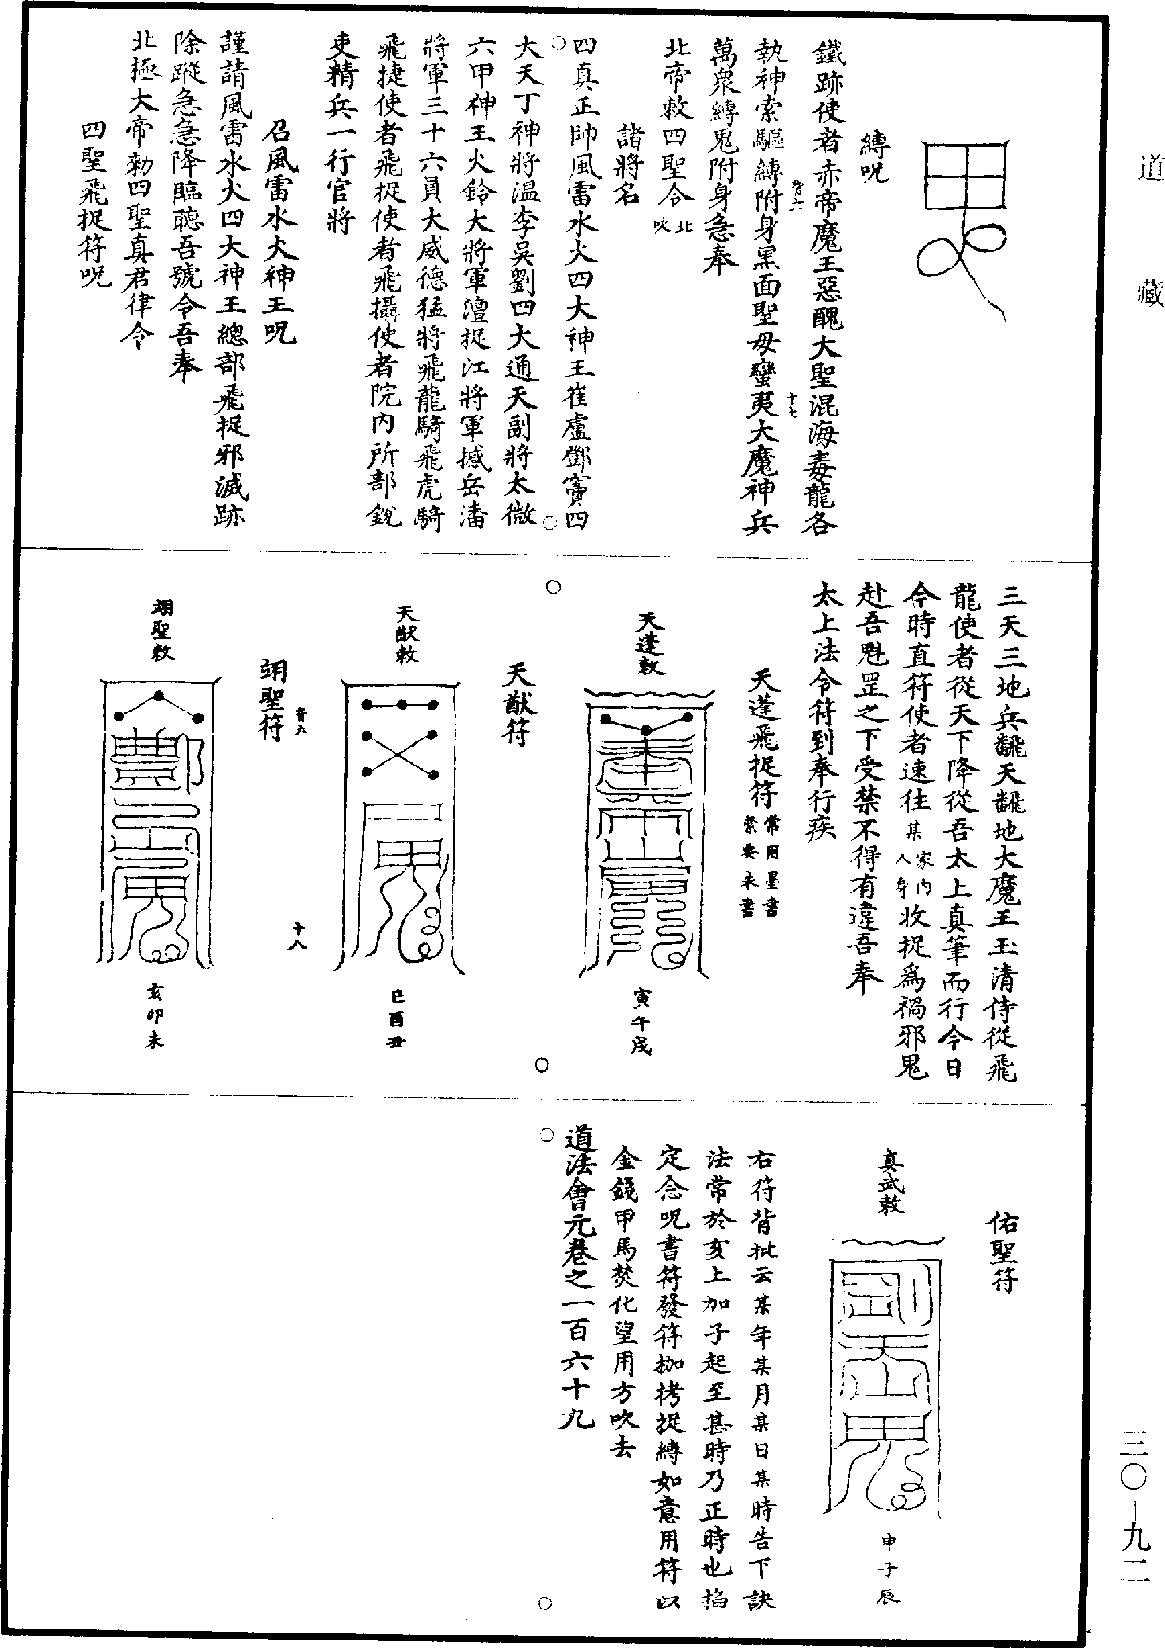 道藏
縛呪
鐵跡使者赤帝魔王惡醜大聖混海毒龍各
執神索驅縛附身黑面聖母蠻夷大魔神兵
萬眾縛鬼附身急奉
北帝敕四聖令
諸將名
四真正帥風雷水火四大神王崔盧鄧竇四
大天丁神將溫李吳劉四大通天副將太微
六甲神王火鈴大將軍澶捉江將軍撼岳潘
將軍三十六員大威德猛將飛龍騎飛虎騎
飛捷使者飛捉使者飛攝使者院內所部銳
吏精兵一行官將
召風雷水火神王呪
謹請風雷水火四大神王總部飛捉邪滅跡
除蹤急急降臨聽吾號令吾奉
北極大帝勑四聖真君律令
四聖飛捉符呪
十七
三天三地兵飜天飜地大魔王玉清侍從飛
龍使者從天下降從吾太上真筆而行今日
今時直符使者速往某家內人身收捉為禍邪鬼
赴吾魁罡之下受禁不得有違吾奉
太上法令符到奉行疾
天蓬飛捉符常用墨書緊要朱書
天蓬敕
寅午戌
天猷符
天猷敕
巳酉丑
翊聖符
翊聖敕
亥卯未
十八
佑聖符
真武敕
申子辰
右符背批云某年某月某日某時告下訣
法常於亥上加子起至甚時乃正時也掐
定念呪書符發符枷拷捉縛如意用符以
金錢甲馬焚化望用方吹去
道法會元卷之一百六十九
三〇—九二